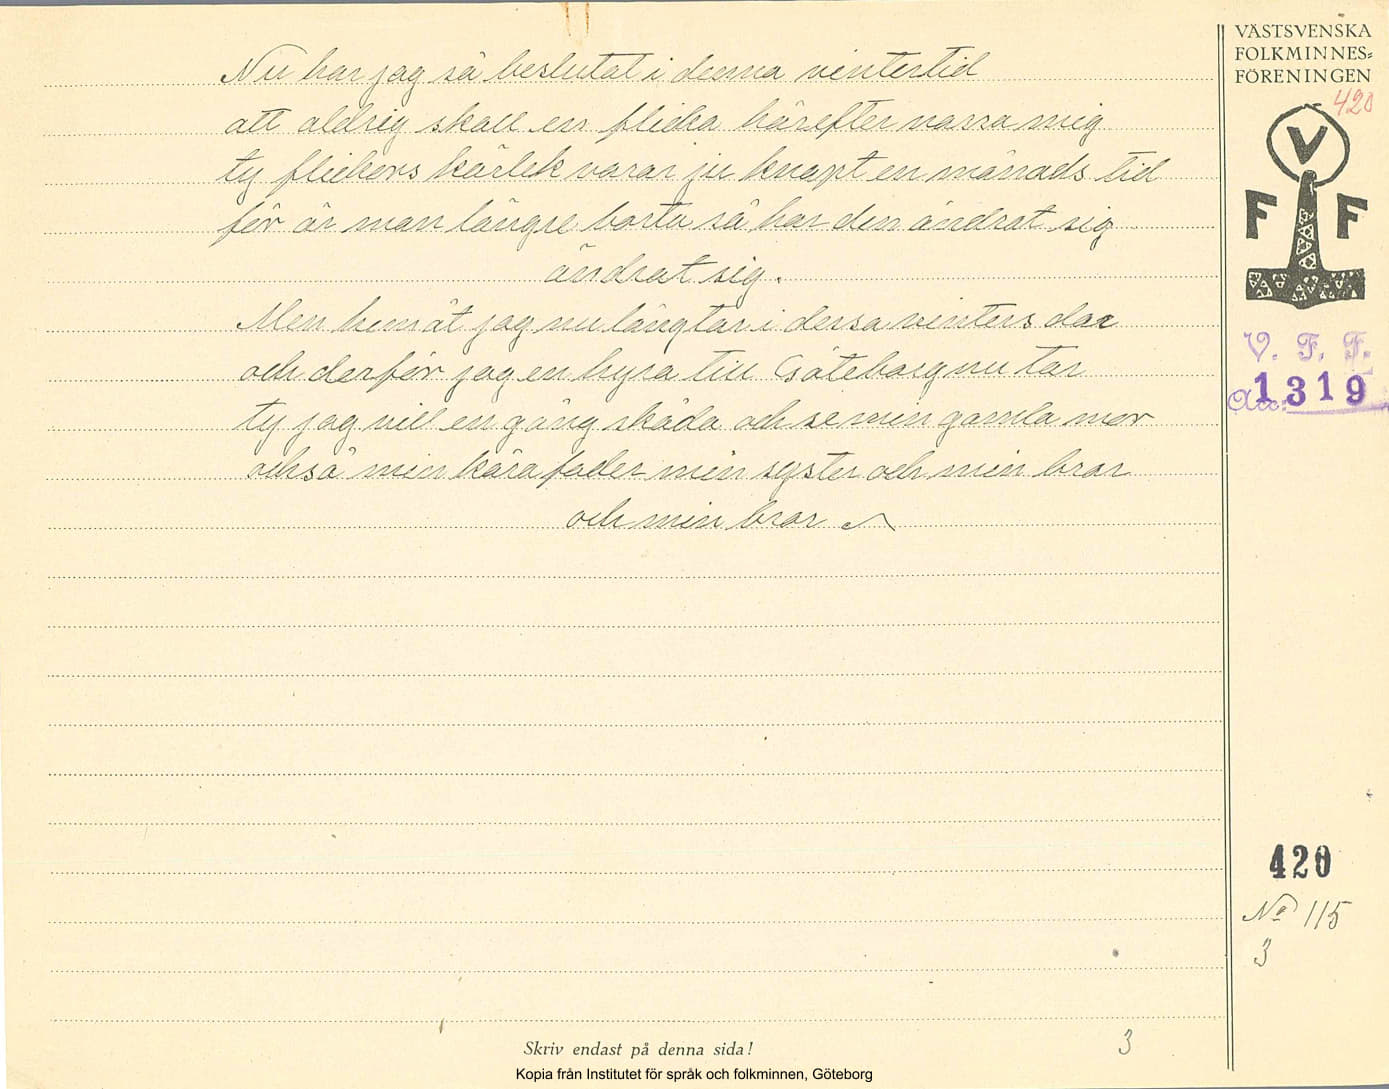 Nu har jag så beslutat i denna vintertid
att aldrig skall en flicka härefter narra mig
ty flickors kärlek varar ju knapt en månads tid
för är man längre borta så har den ändrat sig
ändrat sig.
Men hemåt jag nu längtar i dessa vinters dar
och derför jag en hyra till Göteborg nu tar
ty jag vill en gång skåda och se min gamla mor
också min kära fader min syster och min bror
och min bror
VÄSTSVENSKA
FOLKMINNES-
FÖRENINGEN
420
V
F F
V. F. F.
Acc: 1319
420
No 115
3
3
Skriv endast på denna sida!
Kopia från Institutet för språk och folkminnen, Göteborg